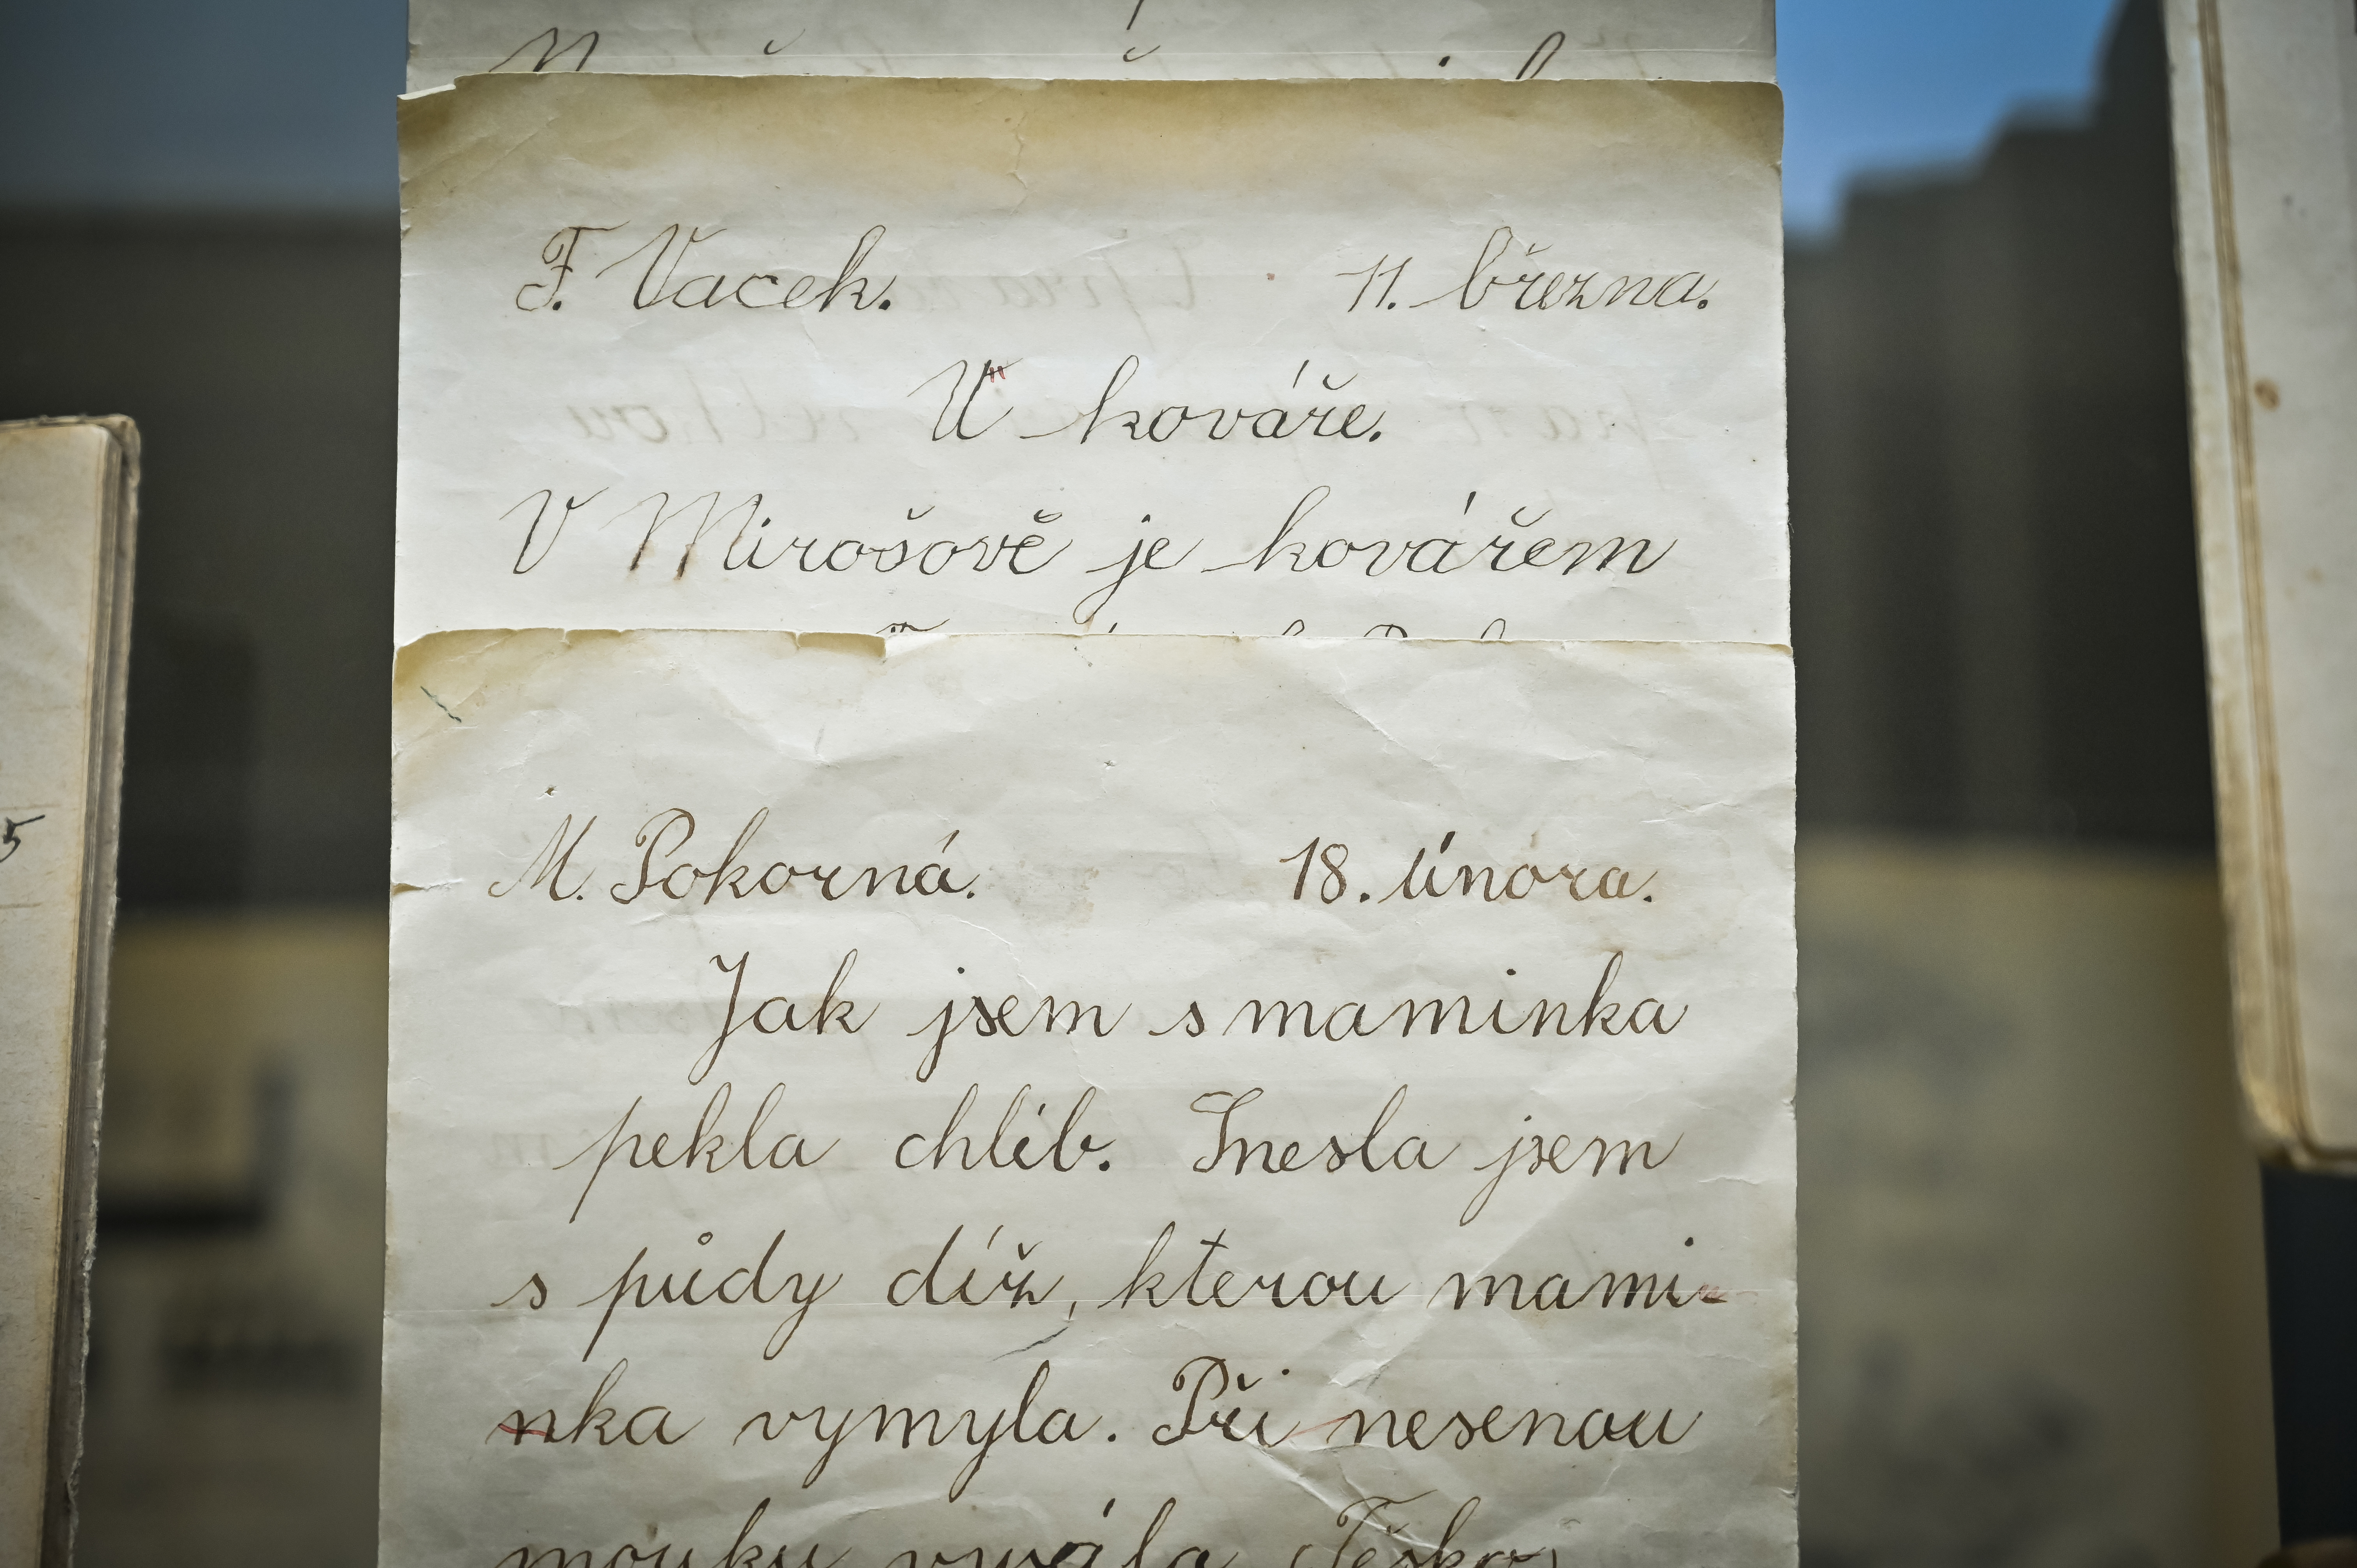 F. Vacek. 11. března.
U kováře.
V Mirošově je kovářem
M. Pokorná. 18. února.
Jak jsem s maminka
pekla chlib. Snesla jsem
s půdy díž, kterou mami-
nka vymyla. Při nesenou
mouku
5